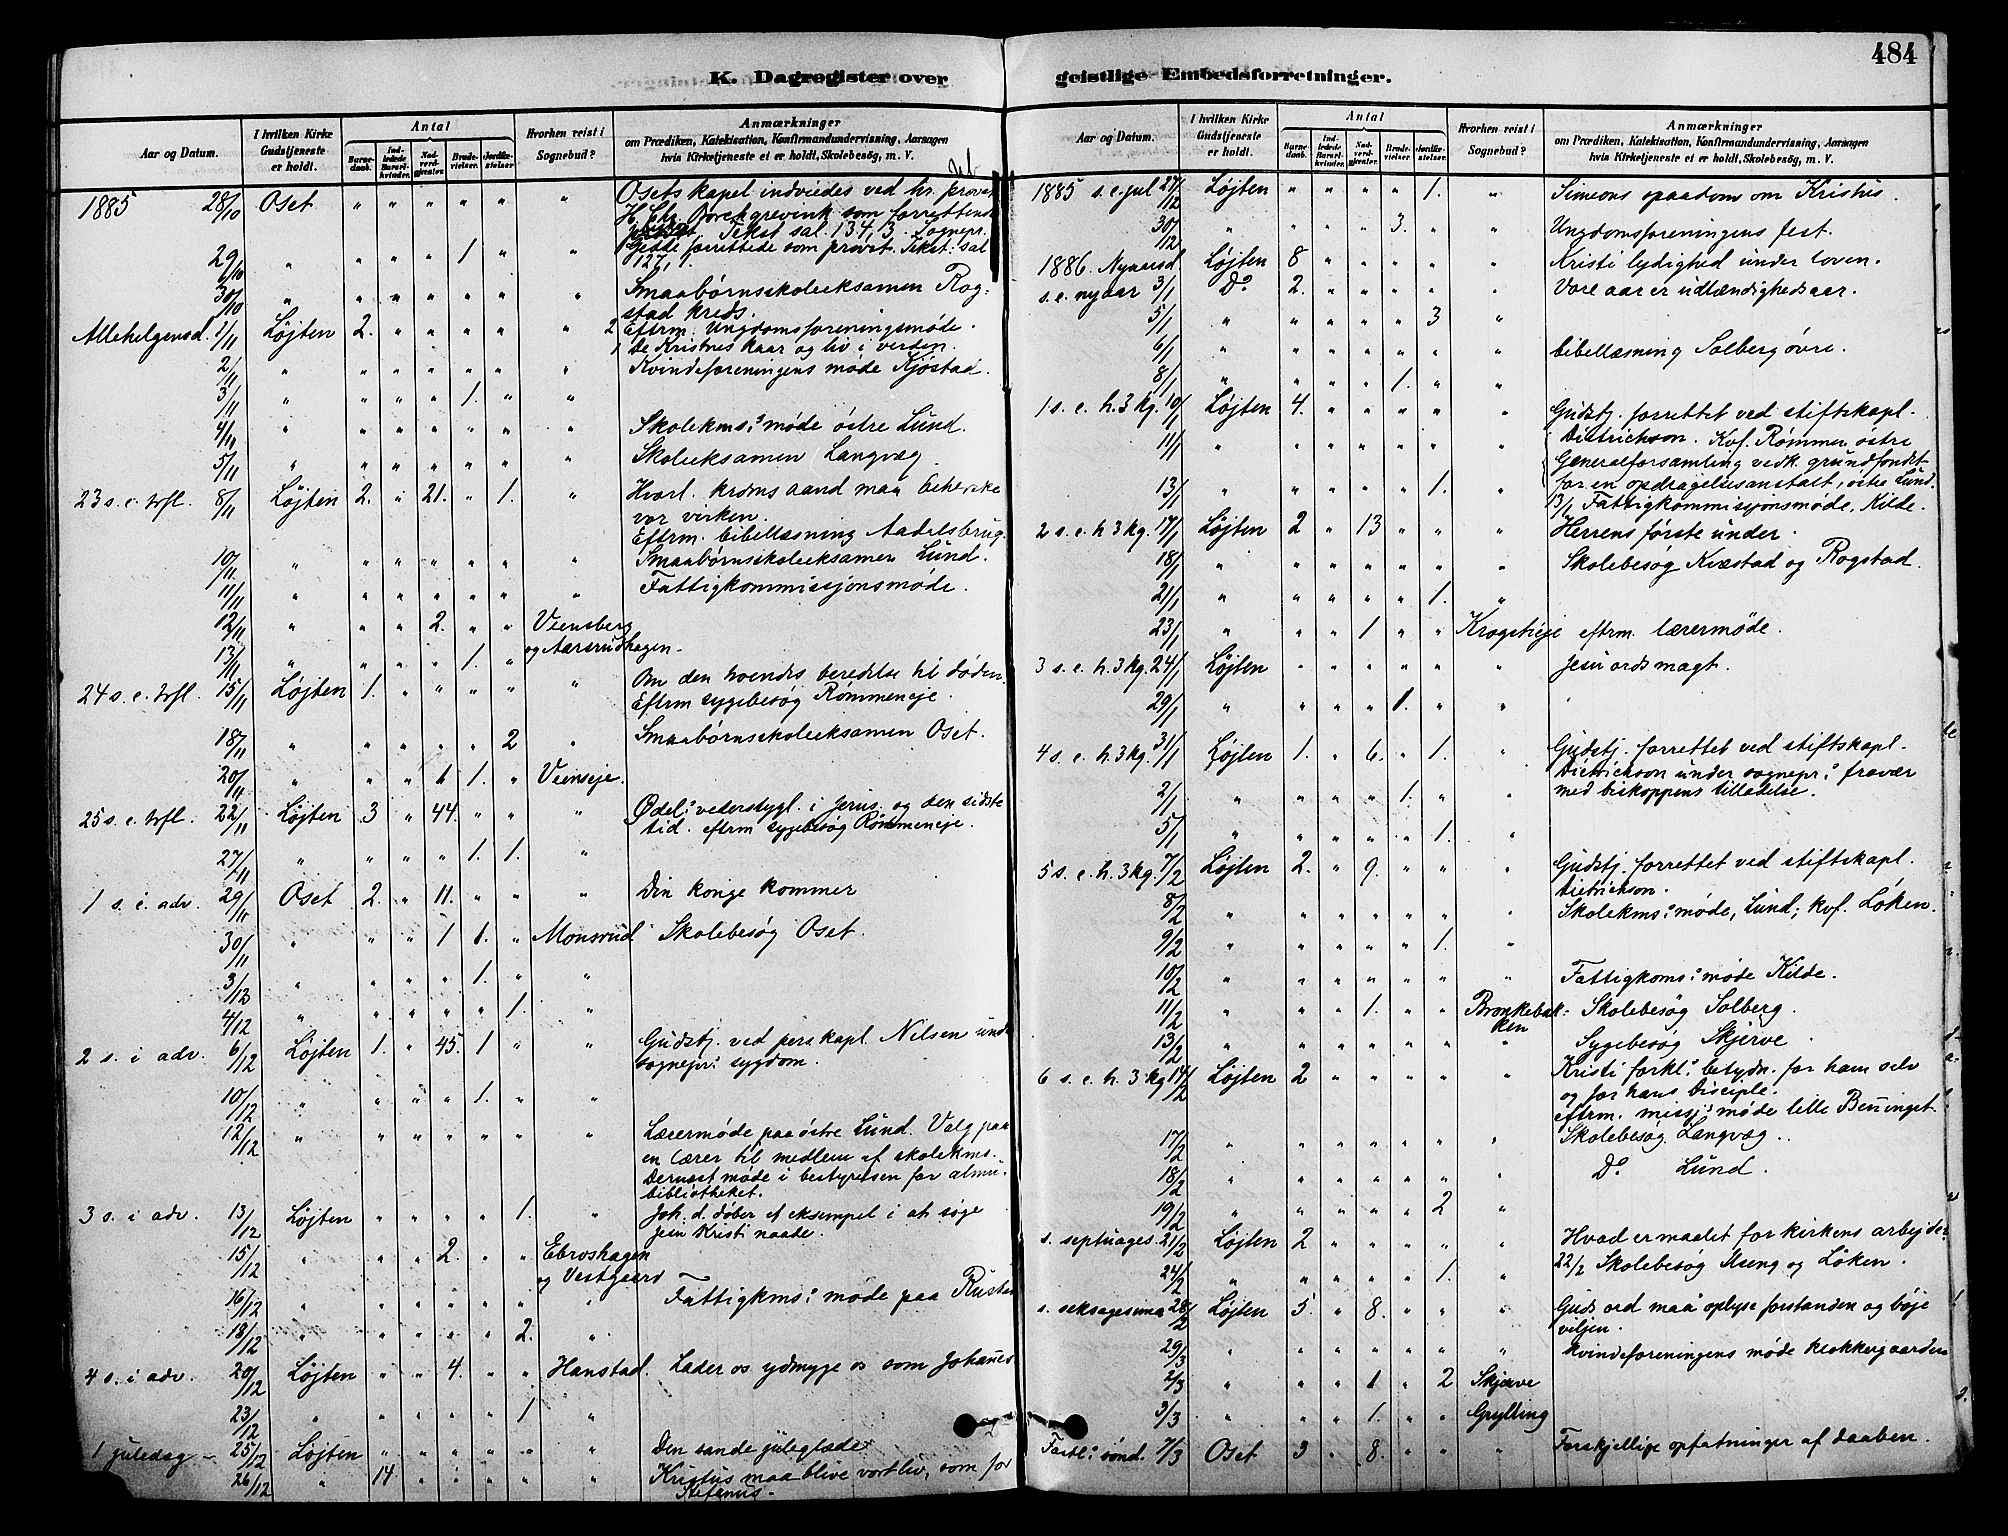 484
K. Dagregister over geistlige Embedsforretninger.
Aar og Datum. I hvilken Kirke Gudstjeneste er holdt. Antal Barnedaab. Indledede Barselkvinder. Nadverdgjæster. Brudevielser. Jordfæstelser. Hvorhen reist i Sognebud? Anmærkninger om Prædiken, Katekisation, Konfirmandundervisning, Aarsagen hvis Kirketjeneste ei er holdt, Skolebesög, m. V.
1885 28/10 Oset " " " " " " Osets kapel indviedes ved hr. provst
H. Chr. Borchgrevink som forrettende
Tekst sal. 134,3. Sognepr.
29/10 " " " " 1 " " Gedde forrettede som provst. Tekst. sal
127,1.
30/10 " " " " " " " Smaabørnsskoleeksamen Rog-
stad kreds.
Allehelgensd. 1/11 Løjten 2. " " " " " 2 Eftrm. Ungdomsforeningsmøde.
1 De Kristnes kaar og liv i verden.
2/11 " " " " " " " Kvindeforeningens møde Kjøstad.
3/11 " " " " 1. " "
4/11 " " " " " " Skolekms: møde östre Lund.
5/11 " " " " " " " Skoleeksamen Langvæg.
23 s. e. trfl. 8/11 Løjten 2. " 21. " 1. " Hvorl. kroms aand maa beherske
vor virken.
Eftrm. bibellæsning Aadalsbrug.
10/11 " " " " " " " Smaabørnsskoleeksamen Lund.
11/11 " " " " " " " Fattigkommissjonsmøde.
12/11 " " " 2. " " Veensberg
13/11 " " " " 1. " og Aarsrudhagen
24 s. e. trfl. 15/11 Løjten 1. " " " " " Om den troendes beredelse til døden.
Eftrm sygebesøg Rømmeneje.
18/11 " " " " " 2 " Smaabørnsskoleeksamen Oset.
20/11 " " " 1 1. " Veenseje.
25 s. e. trfl. 22/11 Løjten 3 " 44. " " " Ødel: vederstygl. i Jerus. og den sidste
tid. eftrm sygebesøg Rømmeneje.
27/11 " " " " 1. 1. "
1 s. i. adv. 29/11 Oset 2. " 11. " " " Din konge kommer
30/11 " " " 1 1. " Monsrud Skolebesøg Oset.
3/12 " " " " 1. " "
4/12 " " " " " 1. "
2 s. i adv. 6/12 Løjten 1. " 45. 1 " " Gudstj. ved pers kapl. Nilsen und
sognepr: sygdom.
10/12 " " " " 1. " "
12/12 " " " " " " " Lærermøde paa östre Lund. Valg paa
en lærer til medlem af skolekms.
Dernæst møde i bestyrelsen for almu-
bibliotheket.
3 s. i adv. 13/12 Løjten " " " " 1. " Joh. d. døber et eksempel i at søge
Jesu Kristi naade.
15/12 " " " 2. " " Ebroshagen
og Vestgaard
16/12 " " " " " " " Fattigkms: møde paa Rustad
18/12 " " " " " 2. "
4 s. i adv. 20/12 Løjten " " 4. " " Hanstad. Lader os ydmyge os som Johanes
23/12 " " " " " 1 "
1 juledag - 25/12 Løjten " " " " " " Den sande juleglæde
26/12 " 14 " " " " " Kristus maa blive vort liv, som for
Stefanus -
Aar og Datum. I hvilken Kirke Gudstjeneste er holdt. Antal Barnedaab. Indledede Barselkvinder. Nadverdgjæster. Brudevielser. Jordfæstelser. Hvorhen reist i Sognebud? Anmærkninger om Prædiken, Katekisation, Konfirmandundervisning, Aarsagen hvis Kirketjeneste ei er holdt, Skolebesög, m. V.
1885 s. e. jul 27/12 Løjten " " " " 1. " Simeons spaadom om Kristus.
30/12 " " " " 3. " " Ungdomsforeningens fest.
1886. Nyaarsd. Løjten 8 " " " " " Kristi lydighed under loven.
s. e. nyaar 3/1 Do 2. " " " " " Vore aar er udlændighedsaar.
5/1 " " " " " 3 "
6/1 " " " " " " " bibellæsning Solberg øvre.
8/1 " " " " 1. " "
1 s. e. h. 3 kg. 10/1 Løjten 4. " " " " " Gudstj. forrettet ved stiftskapl.
Dietrichson. Kvf. Rømmen östre
11/1 " " " " " " " Generalforsamling vedk. grundfondet
for en opdragelsesanstalt, östre Lund.
13/1 " " " " " 1. " 13/1 Fattigkommissjonsmøde, Kilde.
2 s. e. h 3 kg. 17/1 Løjten 2 " 13 " " " Herrens første under.
18/1 " " " " " " " Skolebesøg Kvæstad og Rogstad.
21/1 " " " " " 1. "
23/1 " " " 1 " " Krogstieje eftrm. lærermøde.
3 s. e. h. 3 kg. 24/1 Løjten " " " " " " Jesu ords magt.
29/1 " " " " 1. " "
4 s. e. h. 3 kg. 31/1 Løjten 1. " 6. " 1. " Gudstj. forrettet ved stiftskapl.
Dietrichson under sognepr: fravær
2/1 " " " " 1. " " med biskoppens tilladelse.
5/1 " " " " " 1. "
5 s. e. h. 3 kg. 7/2 Løjten 2. " 9. " " " Gudstj. forrettet ved stiftskapl.
Dietrichson.
8/2 " " " " " " " Skolekms: møde, Lund; kvf. Løken.
9/2 " " " " " 1. "
10/2 " " " " " " " Fattigkoms: møde Kilde.
11/2 " " " 1. " " Bronkebak- Skolebesøg Solberg.
ken
13/2 " " " " " " " Sygebesøg Skjerve.
6 s. e. h. 3 kg 14/2 Løjten 2 " " " " " Kristi forkl: betydn. for ham selv
og for hans Disciple.
eftrm. missj: møde lille Benninget.
17/2 " " " " " " " Skolebesøg Langvæg.
18/2 " " " " " " " Do Lund.
19/2 " " " " " 2 "
s. septuages. 21/2 Løjten 2 " " " " " Hvad er maalet for kirkens arbejde?
22/2 Skolebesøg Moeng og Løken.
24/2 " " " " " 1. "
s. seksagesima 28/2 Løjten 5. " 8. " " " Guds ord maa oplyse forstanden og bøje
viljen.
29/3 " " " " " " " Kvindeforeningens møde Klokkergaarden
2/3 " " " 1 " 2 Skjerve
3/3 " " " 1. " " Grylling
Fastel: sønd. 7/3 Oset 3 " 8. " " " Forskjellige opfatninger af daaben.